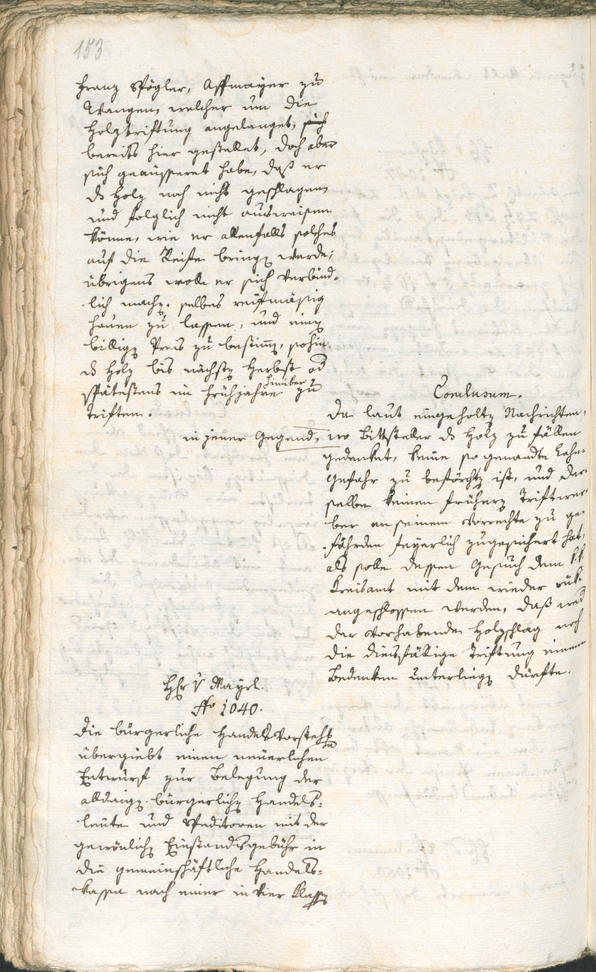 153
Franz Spögler, Affmayer zu
Wangen, welcher um die
Holztriftung angelanget, sich
bereits hier gestellet, doch aber
sich geäusseret habe, daß er
ds Holz noch nicht geschlagen,
und folglich nicht ausweisen
könne, wie er allenfalls solches
auf die Reife bringen werde;
übrigens wolle er sich verbind-
lich machen selbes
hauen zu lassen, und einen
billigen Preis zu bestimen, sohin
ds Holz bis nächsten Herbst od
spätestens im Frühjahre hinüber zu
triften.
Conclusum.
Da laut eingeholten Nachrichten,
in jener Gegend, wo Bittsteller ds Holz zu fällen
gedenket, keine so genandte Lahn-
gefahr zu beförchten ist, und der-
selbe keinen früheren Triftwer-
ber an seinem Vorrechte zu ge-
fährden feyerlich zugesichert hat,
als solle dessen Gesuch dem k.k.
Kreisamt mit dem wieder rük-
angeschlossen werden, daß weder
der vorhabende Holzschlag noch
die diesfällige Triftung einem
Bedenken unterliegen dürfte.
H. v Mayrl.
No 1040.
Die bürgerliche Handelsvorstehung
übergiebt einen neuerlichen
Entwurf zur Belegung der
alldaigen bürgerlichen Handels-
leute und Speditoren mit der
gewönlichen Einstandsgebühr in
die gemeinschäftliche Handels-
kassa nach einer in vier Klassen